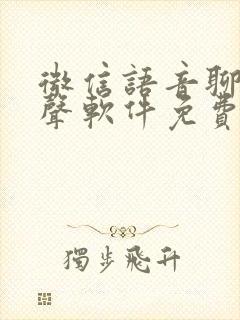 微信語音聊
聲軟件免費
獨步飛升